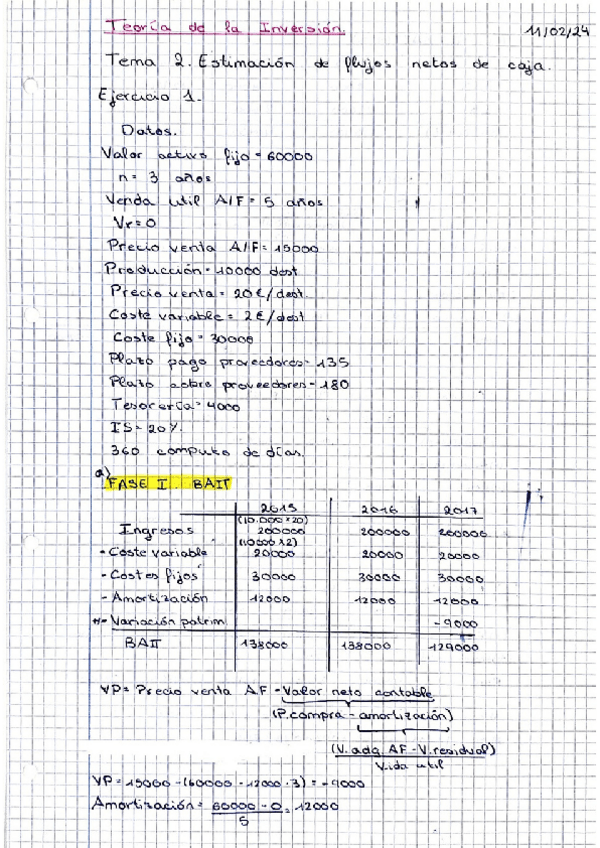 Teoría de la Inversión. 11/02/24
Tema 2. Estimación de flujos netos de caja.
Ejercicio 1.
Datos.
Valor activo fijo = 60000
n = 3 años
Venda util A/F = 5 años
Vr = 0
Precio venta A/F = 15000
Producción = 10000 dest
Precio venta = 20€/dest.
Coste variable = 2€/dest
Coste fijo = 30000
Plazo pago proveedores = 135
Plazo cobro proveedores = 180
Tesorería = 4000
IS = 20%
360 computo de días.
a) FASE I. BAIT
2015 2016 2017
(10.000*20)
Ingresos 200000 200000 200000
(10000*2)
- Coste variable 20000 20000 20000
- Costes fijos 30000 30000 30000
- Amortización 12000 12000 12000
+/- Variación patrim -9000
BAIT 138000 138000 129000
VP = Precio venta AF - Valor neto contable
(P.compra - amortización)
(V. adq. AF - V. residual)
Vida util
VP = 15000 - (60000 - 12000 · 3) = -9000
Amortización = 60000 - 0 = 12000
5